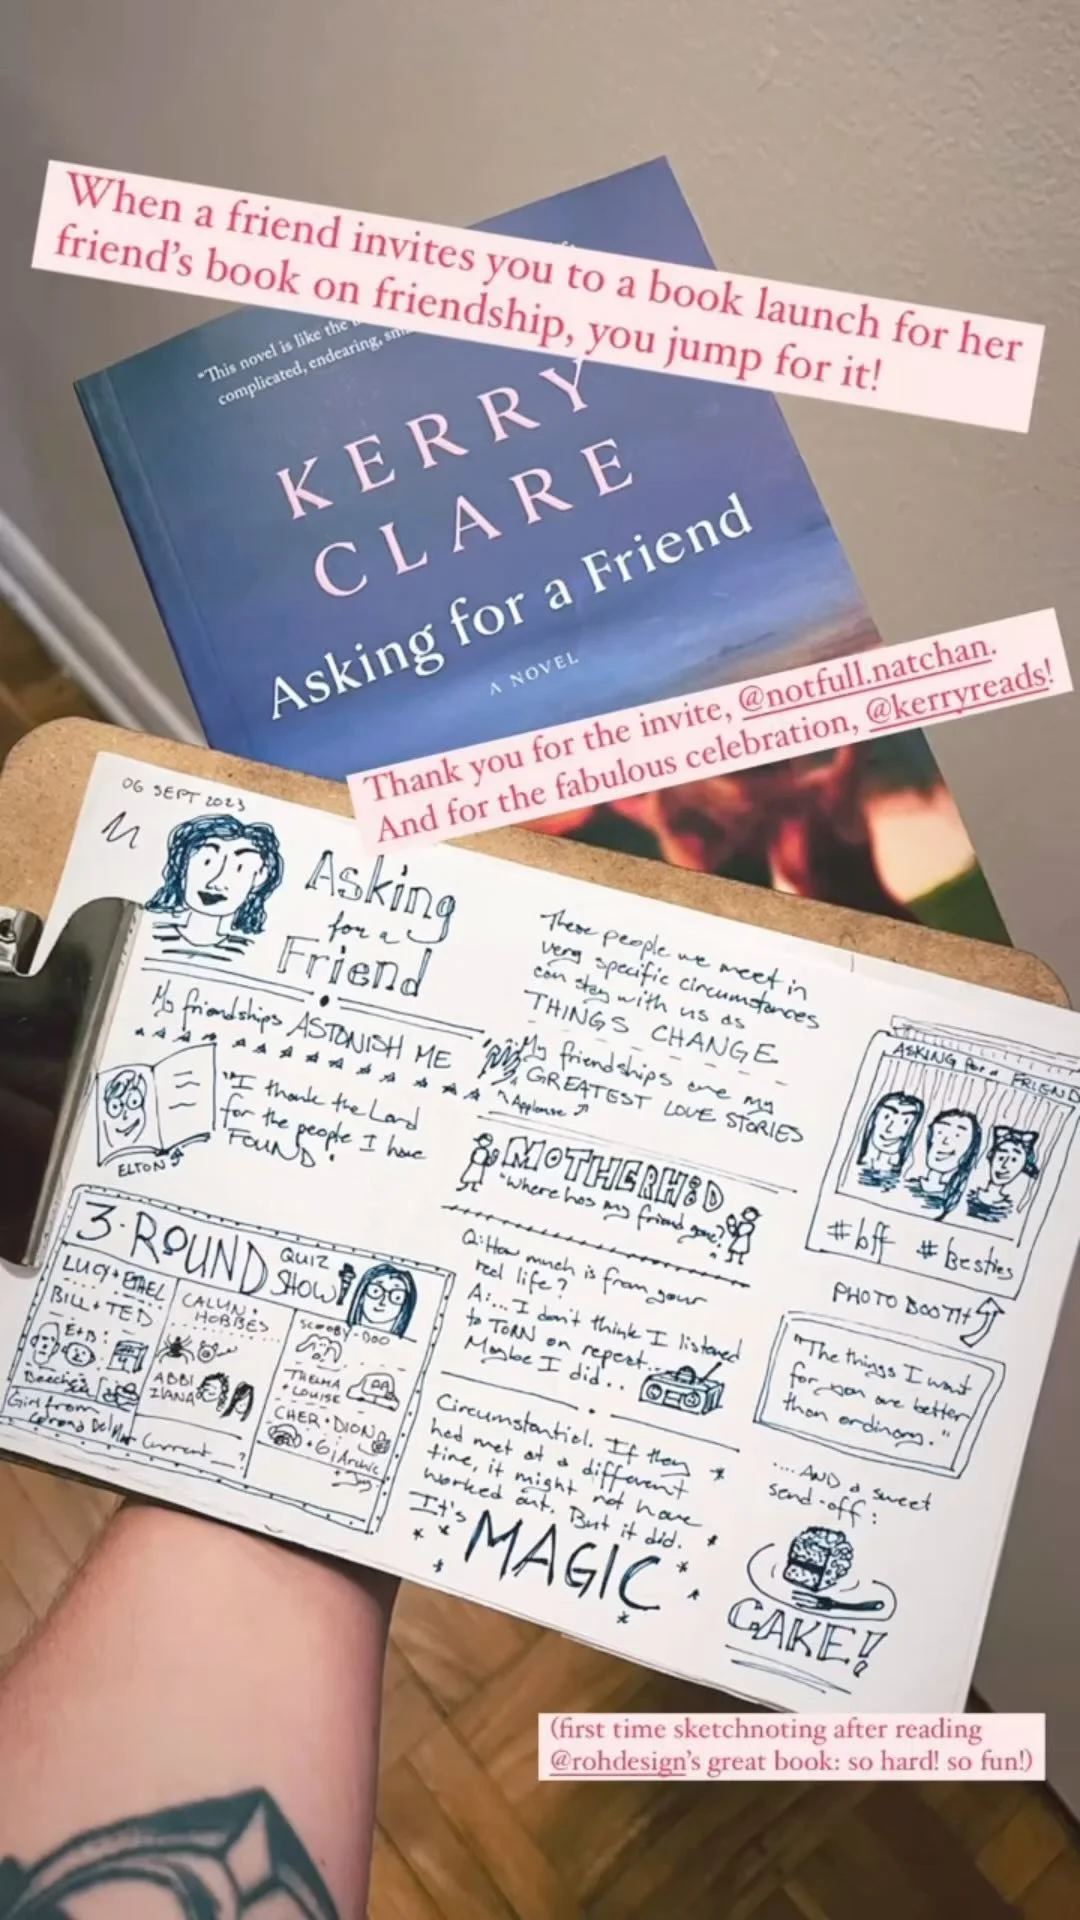 When a friend invites you to a book launch for her
friend's book on friendship, you jump for it!
"This novel is like the
complicated, endearing, sm
KERRY
CLARE
Asking for a Friend
A NOVEL
Thank you for the invite, @notfull.natchan.
And for the fabulous celebration, @kerryreads!
06 SEPT 2023
Asking
for a
Friend
My friendships ASTONISH ME
"I thank the Lord
for the people I have
FOUND."
ELTON
3-ROUND
QUIZ
SHOW
LUCY + ETHEL
BILL + TED
E+B:
Girl from
Corona Del Mar
CALVIN +
HOBBES
ABBI
ILANA
Current
?
SCOOBY-DOO
THELMA
+ LOUISE
CHER + DION
These people we meet in
very specific circumstances
can stay with us as
THINGS CHANGE
My friendships are my
GREATEST LOVE STORIES
Applause
MOTHERHOOD
"Where has my friend gone?"
Q: How much is from your
real life?
A: ... I don't think I listened
to TORN on repeat...
Maybe I did...
Circumstantial. If they
had met at a different
time, it might not have
worked out. But it did.
It's
MAGIC
ASKING for a FRIEND
#bff #besties
PHOTO BOOTH
"The things I want
for you are better
than ordinary."
....AND a sweet
send-off:
CAKE!
(first time sketchnoting after reading
@rohdesign's great book: so hard! so fun!)